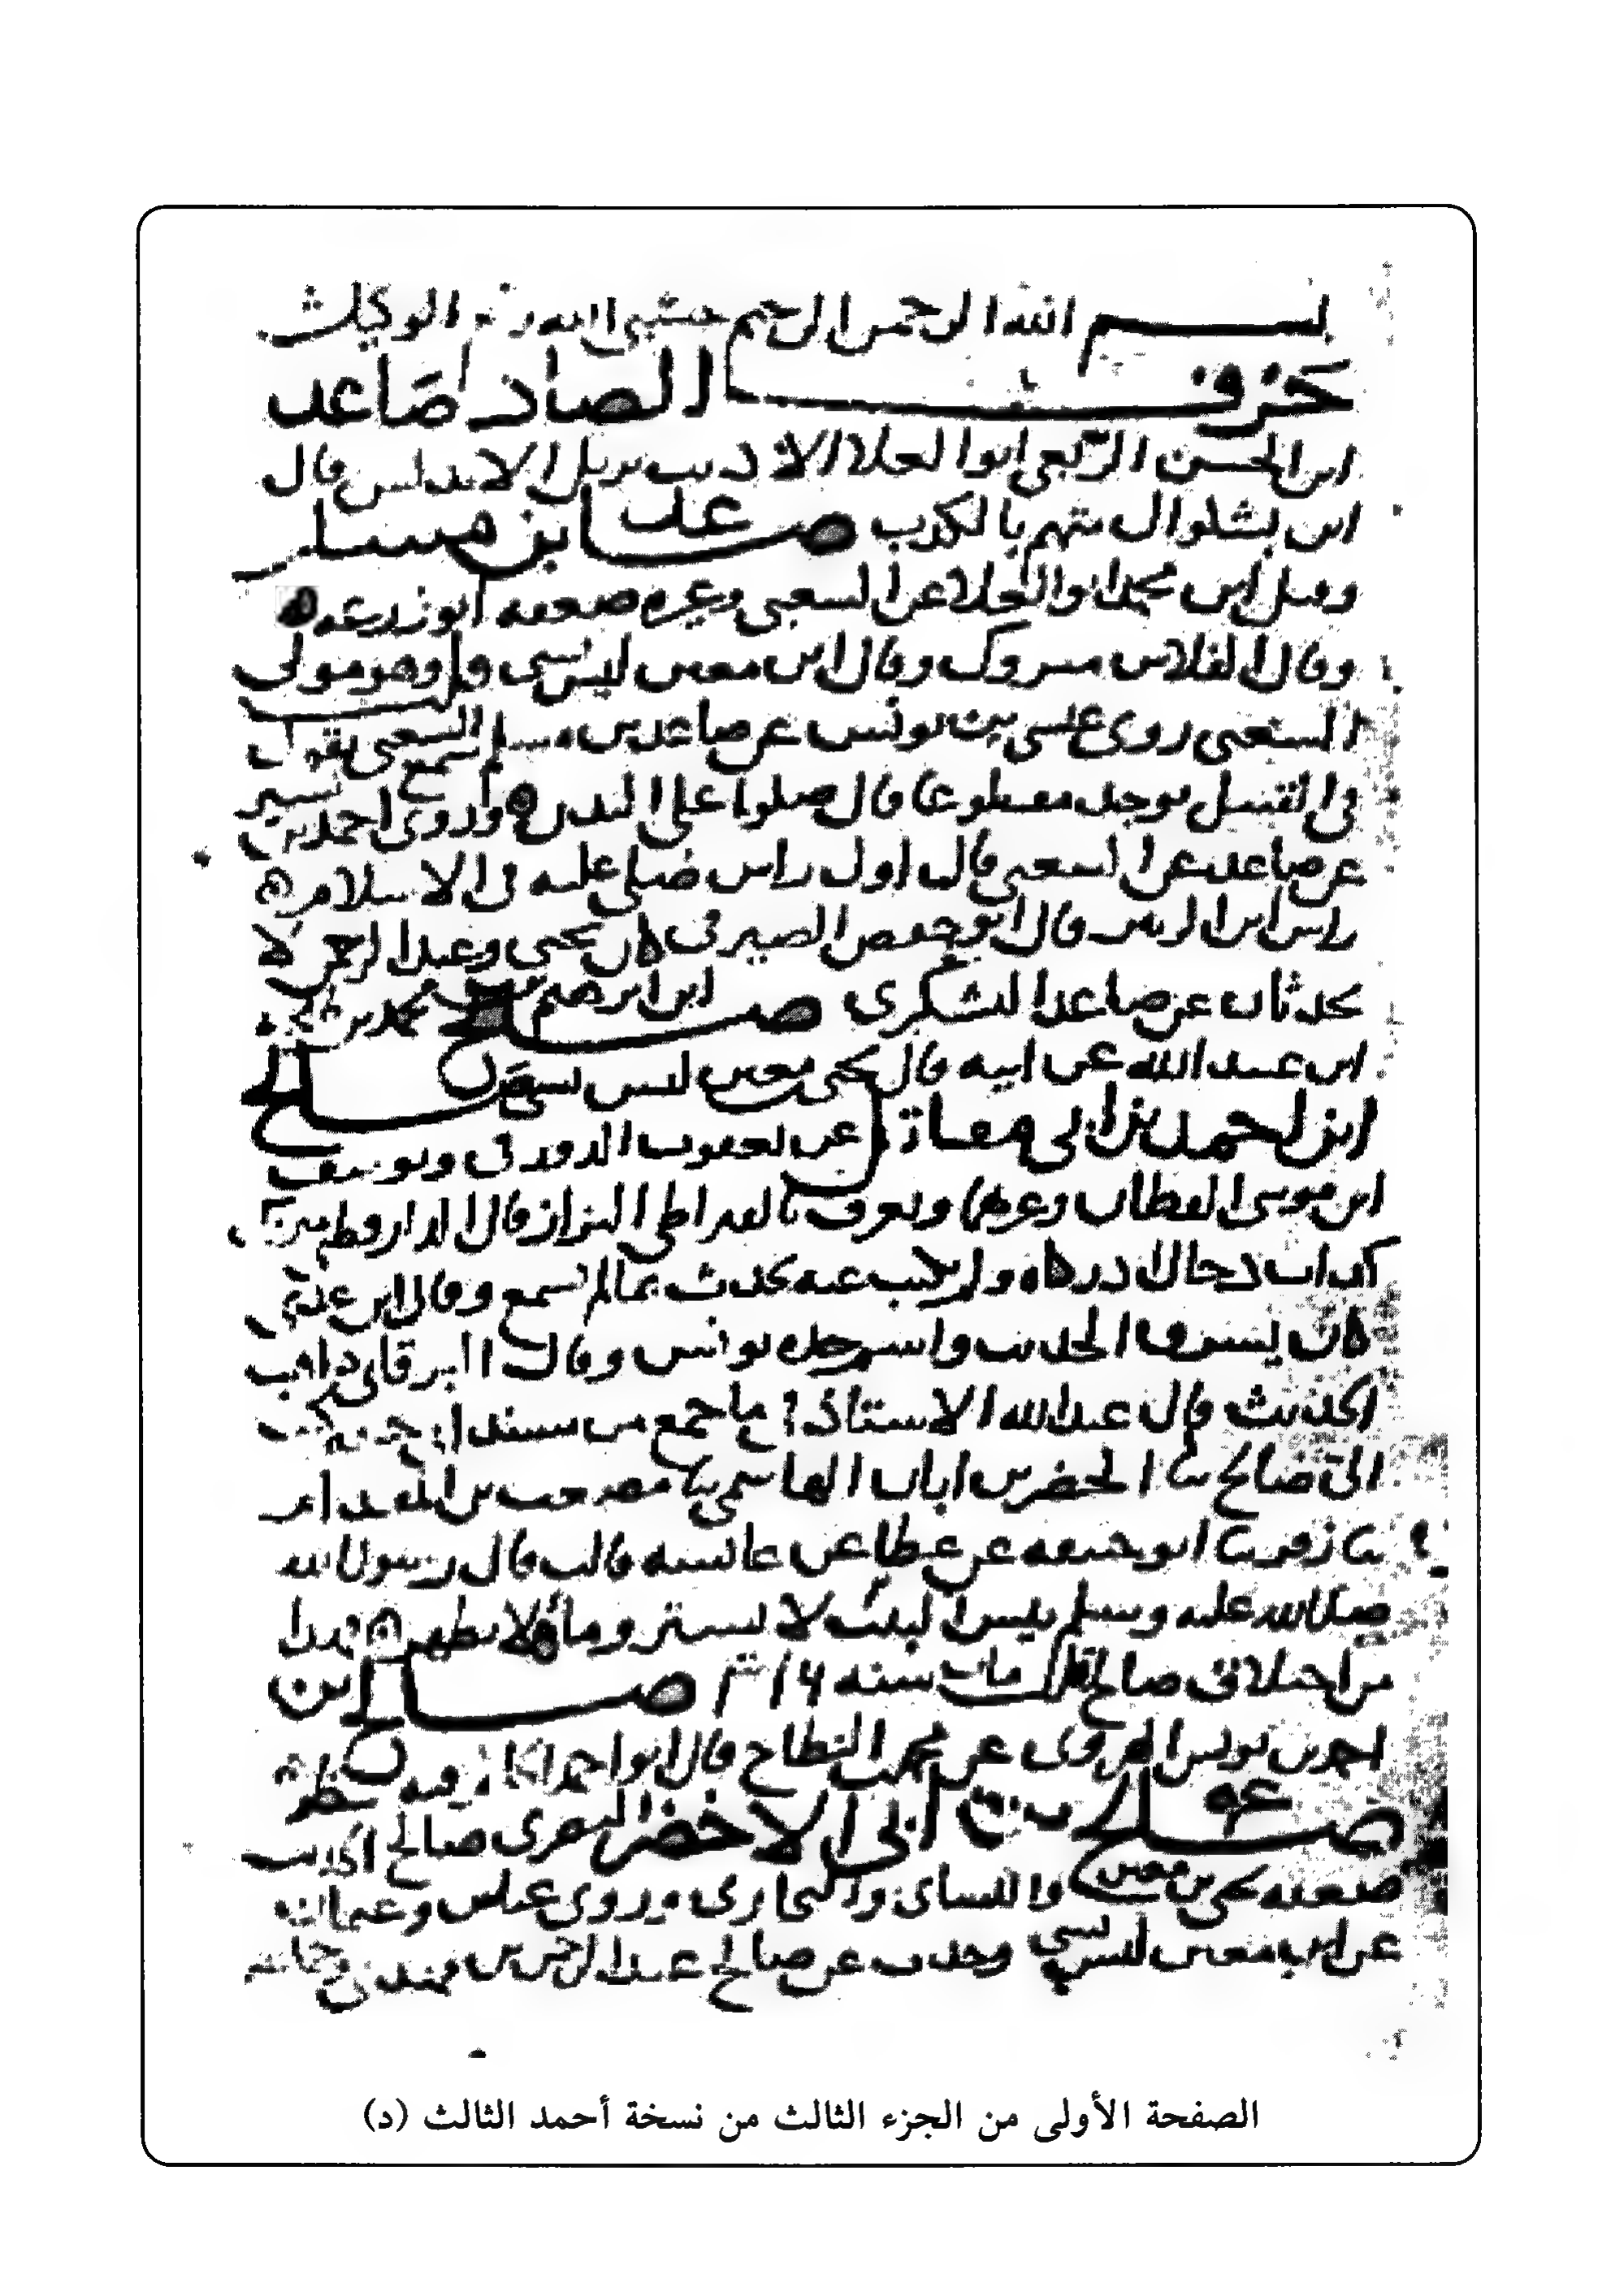 بسم الله الرحمن الرحيم حسبي الله ونعم الوكيل
حرف الصاد صاعد
ابن الحسن الربعي ابوا العلاء الاديب نزيل الاندلس قال
ابن بشكوال متهم بالكذب صاعد ابن مسلم
وقيل ابن محمد ابوا العلا عن الشعبي وغيره ضعفه ابو زرعه
وقال الفلاس متروك وقال ابن معين ليس بشي وهو مولى
الشعبي روى عيسى بن يونس عن صاعد بن مسلم سمع الشعبي يقول
في القتيل يوجد مقطوعا قال صلوا على البدن وروى احمد بن بشير
عن صاعد عن الشعبي قال اول راس صلى عليه في الاسلام
راس ابن الزبير قال ابو حفص الصيرفي كان يحيى وعبد الرحمن لا
يحدثان عن صاعد اليشكري صالح ابن ابراهيم بن محمد بن
ابن عبد الله عن ابيه قال يحيى بن معين ليس بشي صالح
ابن احمد بن ابي مقاتل عن يعقوب الدورقي ويوسف
ابن موسى القطان وغيرهم ويعرف بالقيراطي البزاز قال الدارقطني
كذاب دجال ادركناه ولم نكتب عنه يحدث بما لم يسمع وقال ابن عدي
كان يسرق الحديث وقال البرقاني ذاهب
الحديث قال عبد الله الاستاذ فيما جمع من مسند ابي حنيفه كتب
الي صالح ثنا الخضر بن ابان الهاشمي ثنا مصعب بن المقدام
ثنا زفر ثنا ابو حنيفه عن عطا عن عائشه قالت قال رسول الله
صلى الله عليه وسلم بيس البيت لا يستر وما لا يطهر هذا
من اختلاق صالح مات سنه ٣١٦ صالح بن
احمد بن يونس الهروي عن محمد النطاح قال ابو احمد الحاكم فيه نظر
صالح بن ابي الاخضر البصري صالح الحديث
ضعفه يحيى بن معين والنسائي والبخاري وروى عباس وعثمان
عن ابن معين ليس بشي وحدث عن صالح عبد الرحمن بن مهدي
الصفحة الأولى من الجزء الثالث من نسخة أحمد الثالث (د)